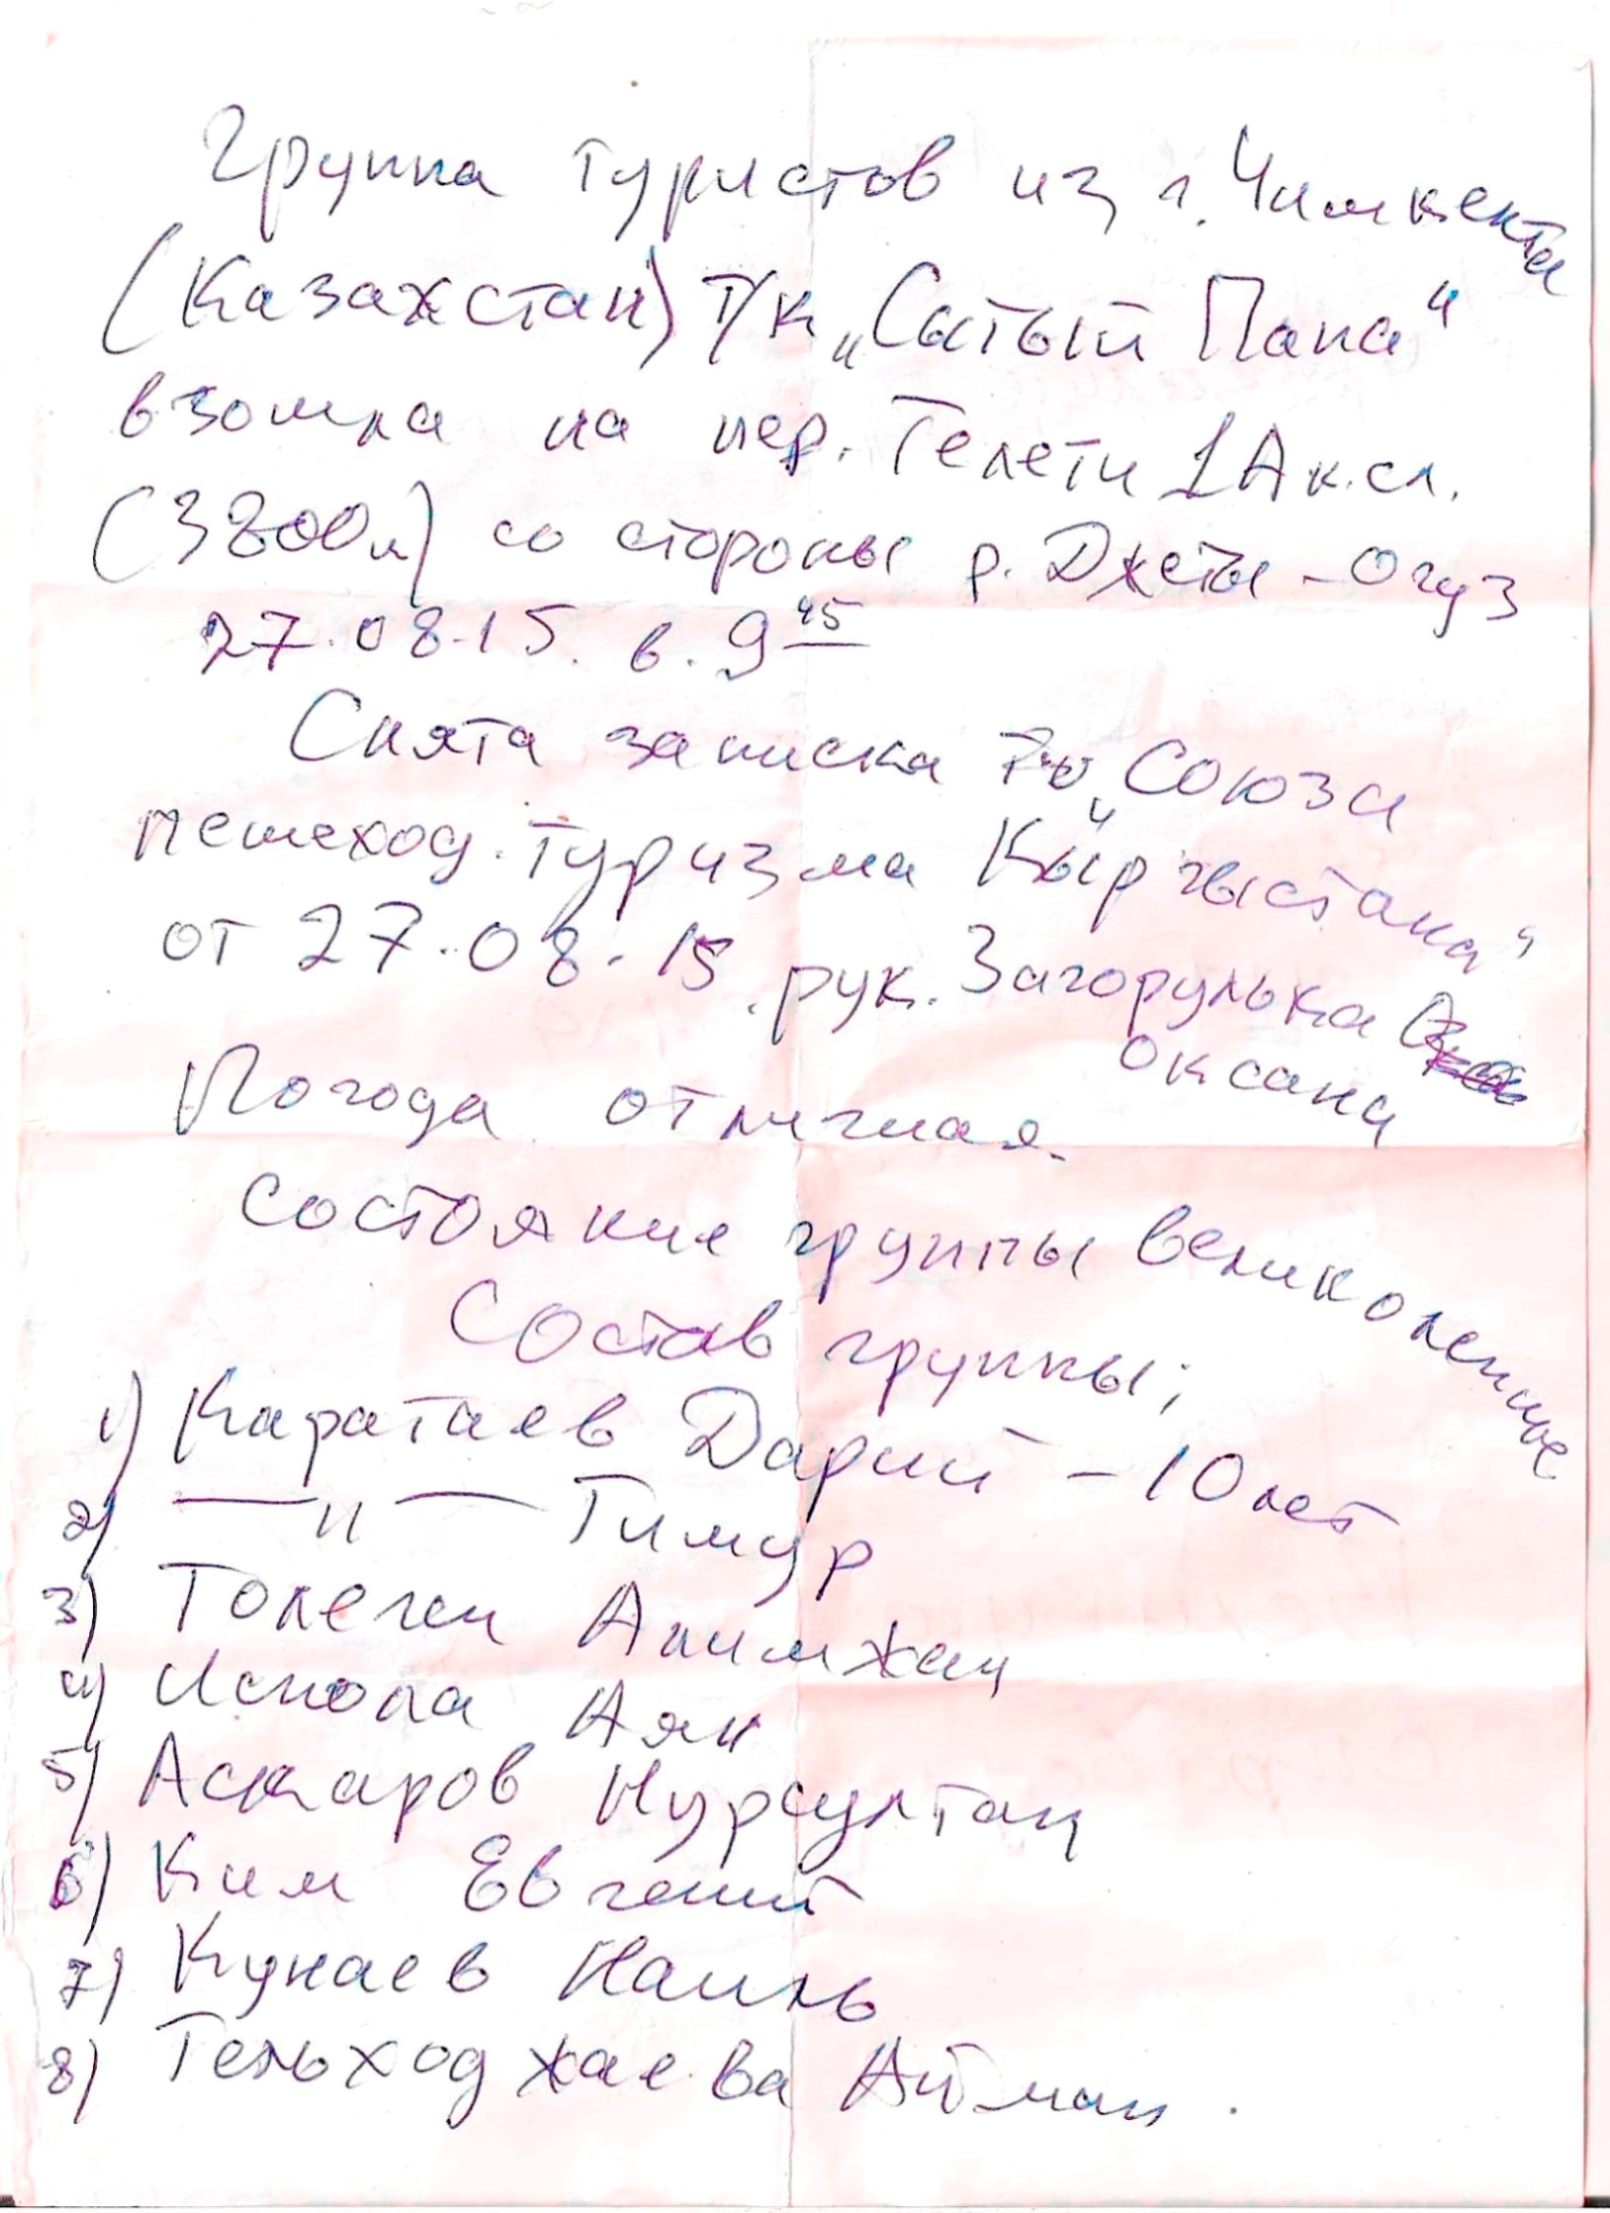 Группа туристов из г. Чимкента
(Казахстан) т/к „Сытый Папа“
взошла на пер. Телети 1А к.сл.
(3800м) со стороны р. Джеты-Огуз
27.08.15. в. 9 45
Снята записка „Союза
пешеход. туризма Кыргыстана“
от 27.08.15. рук. Загорулька
Оксана
Погода отличная.
Состояние группы великолепные
Состав группы;
1) Каратаев Дарий – 10 лет
2) —"— Тимур
3) Толеген Алимжан
4) Аян
5) Аскаров Нурсултан
6) Ким Евгений
7) Кунаев Наиль
8) Тельходжаева Айман.